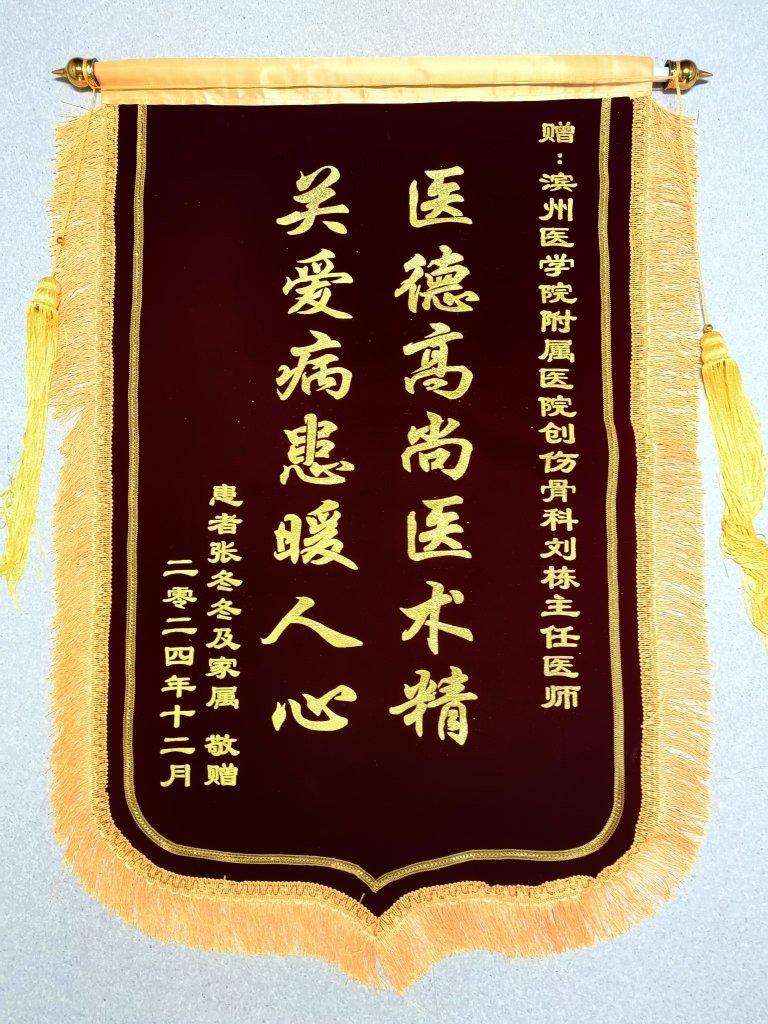 赠：滨州医学院附属医院创伤骨科刘栋主任医师
医德高尚医术精
关爱病患暖人心
患者张冬冬及家属 敬赠
二零二四年十二月